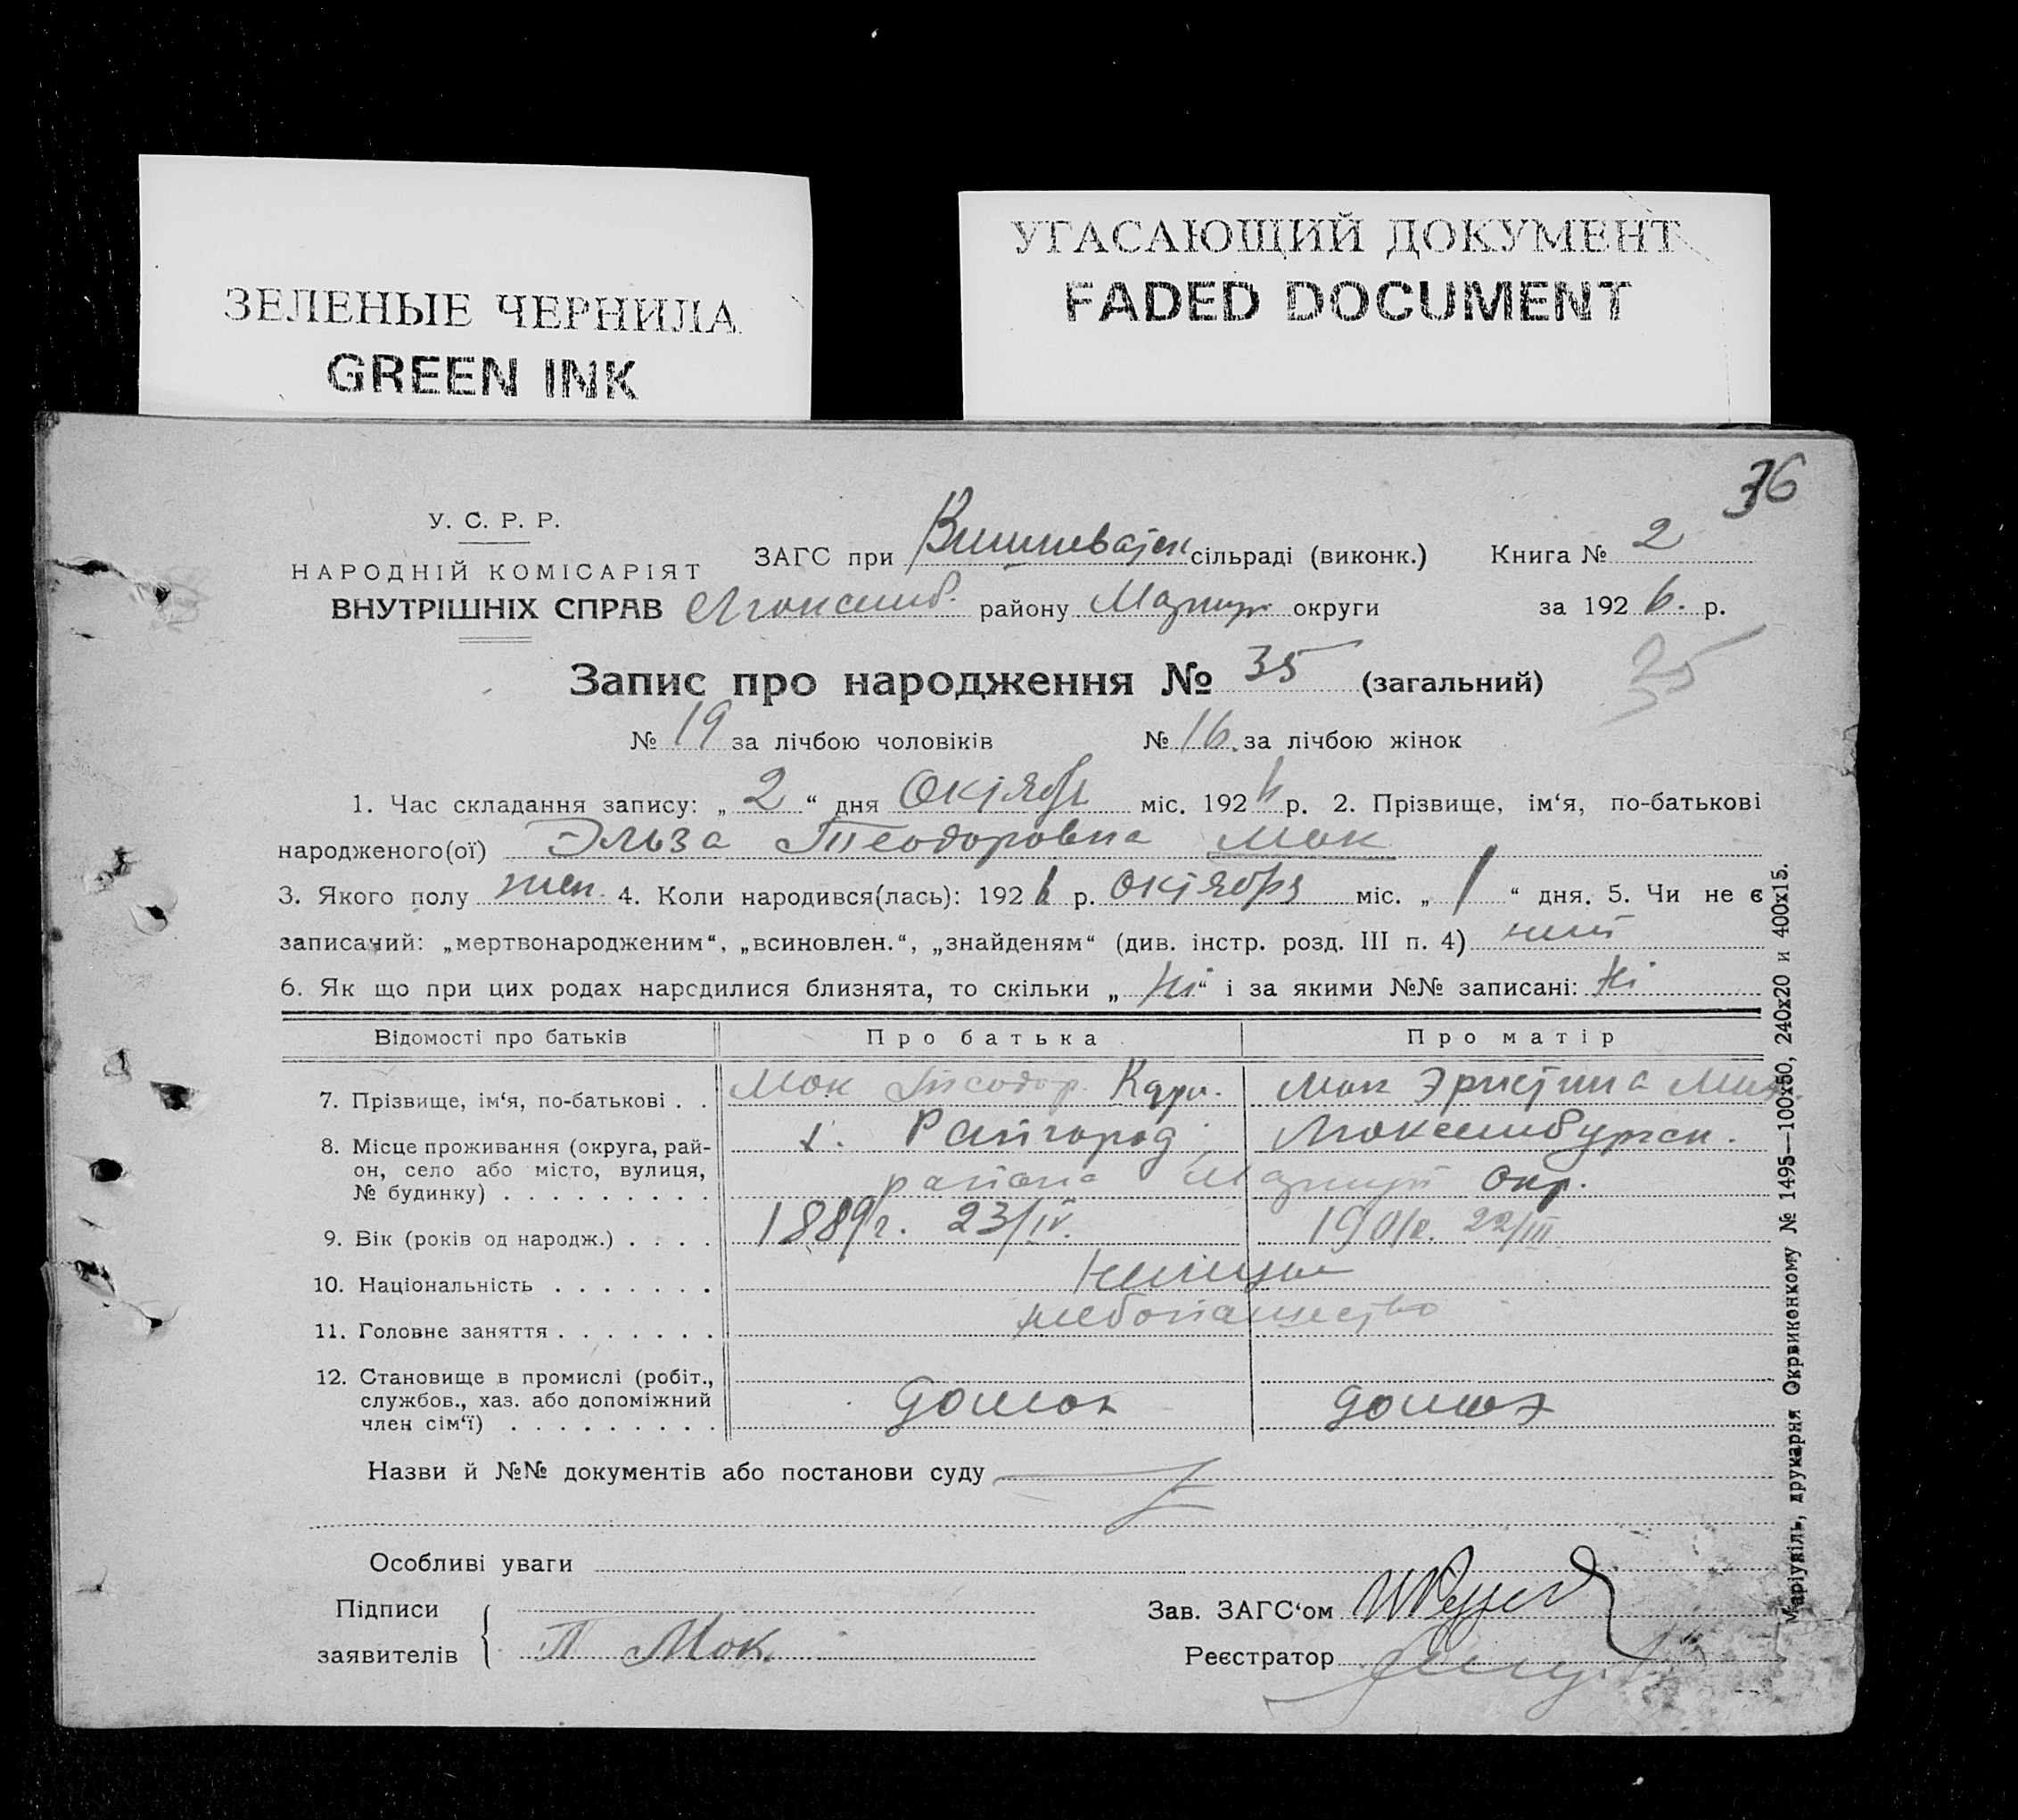 УГАСАЮЩИЙ ДОКУМЕНТ
FADED DOCUMENT
ЗЕЛЕНЫЕ ЧЕРНИЛА
GREEN INK
36
У. С. Р. Р.
НАРОДНІЙ КОМІСАРІЯТ
ВНУТРІШНІХ СПРАВ
ЗАГС при сільраді (виконк.) Книга № 2
району Мариуп. округи за 192 6. р.
Запис про народження № 35 (загальний)
35
№ 19 за лічбою чоловіків № 16. за лічбою жінок
1. Час складання запису: „ 2 “ дня Октября міс. 192 6 р. 2. Прізвище, ім‘я, по-батькові
народженого(ої) Эльза Теодоровна Мок
3. Якого полу жен. 4. Коли народився(лась): 192 6 р. Октября міс. „ 1 “ дня. 5. Чи не є
записаний: „мертвонародженим“, „всиновлен.“, „знайденям“ (див. інстр. розд. III п. 4)
6. Як що при цих родах народилися близнята, то скільки „ Ні “ і за якими №№ записані: Ні
Відомості про батьків Про батька Про матір
7. Прізвище, ім‘я, по-батькові . . Мок Теодор Карл. Мок
8. Місце проживання (округа, рай-
он, село або місто, вулиця,
№ будинку) . . . . . . . . .
к. Райгород, Люксембургск.
района Мариуп Окр.
9. Вік (років од народж.) . . . . 1889г. 23/IV. 1901г. 22/III
10. Національність . . . . . . . Немцы
11. Головне заняття . . . . . . . хлебопашество
12. Становище в промислі (робіт.,
службов., хаз. або допоміжний
член сім‘ї) . . . . . . . . .
домох домох
Назви й №№ документів або постанови суду
Особливі уваги
Підписи
заявителів Т Мок.
Зав. ЗАГС‘ом
Реєстратор
Маріупіль, друкарня Окрвиконкому № 1495—100х50, 240х20 и 400х15.